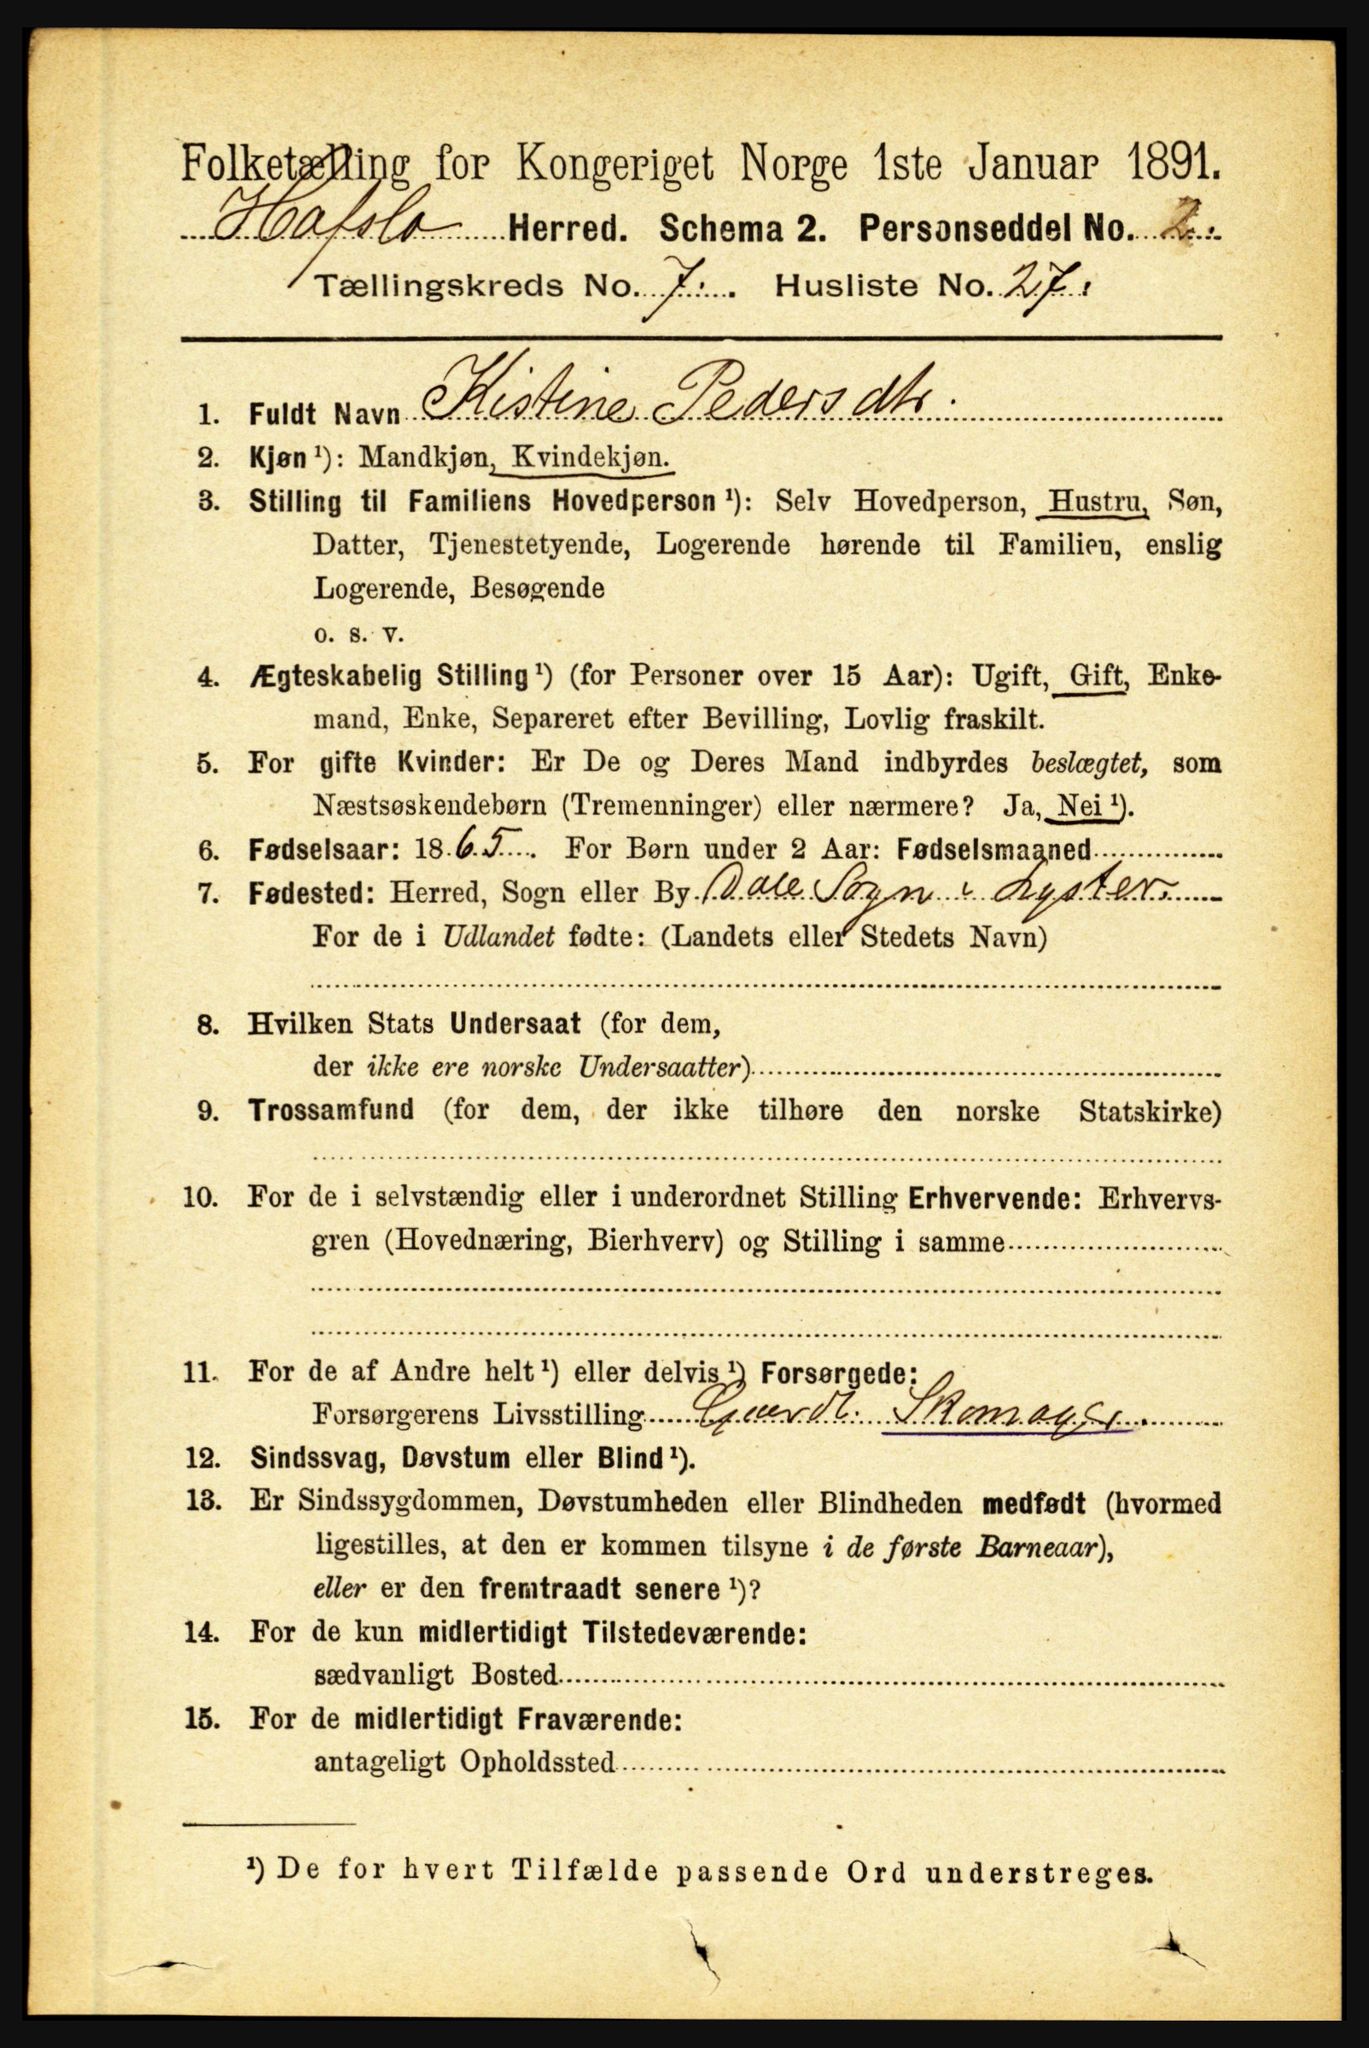 Folketælling for Kongeriget Norge 1ste Januar 1891.
Hafslo Herred. Schema 2. Personseddel No. 2.
Tællingskreds No. 7. Husliste No. 27.
1. Fuldt Navn Kistine Pedersdtr.
2. Kjøn ¹): Mandkjøn, Kvindekjøn.
3. Stilling til Familiens Hovedperson ¹): Selv Hovedperson, Hustru, Søn,
Datter, Tjenestetyende, Logerende hørende til Familien, enslig
Logerende, Besøgende
o. s. v.
4. Ægteskabelig Stilling ¹) (for Personer over 15 Aar): Ugift, Gift, Enke-
mand, Enke, Separeret efter Bevilling, Lovlig fraskilt.
5. For gifte Kvinder: Er De og Deres Mand indbyrdes beslægtet, som
Næstsøskendebørn (Tremenninger) eller nærmere? Ja, Nei ¹).
6. Fødselsaar: 1865. For Børn under 2 Aar: Fødselsmaaned
7. Fødested: Herred, Sogn eller By Dale Sogn i Lyster.
For de i Udlandet fødte: (Landets eller Stedets Navn)
8. Hvilken Stats Undersaat (for dem,
der ikke ere norske Undersaatter)
9. Trossamfund (for dem, der ikke tilhøre den norske Statskirke)
10. For de i selvstændig eller i underordnet Stilling Erhvervende: Erhvervs-
gren (Hovednæring, Bierhverv) og Stilling i samme
11. For de af Andre helt ¹) eller delvis ¹) Forsørgede:
Forsørgerens Livsstilling Skomager.
12. Sindssvag, Døvstum eller Blind ¹).
13. Er Sindssygdommen, Døvstumheden eller Blindheden medfødt (hvormed
ligestilles, at den er kommen tilsyne i de første Barneaar),
eller er den fremtraadt senere ¹)?
14. For de kun midlertidigt Tilstedeværende:
sædvanligt Bosted
15. For de midlertidigt Fraværende:
antageligt Opholdssted
¹) De for hvert Tilfælde passende Ord understreges.